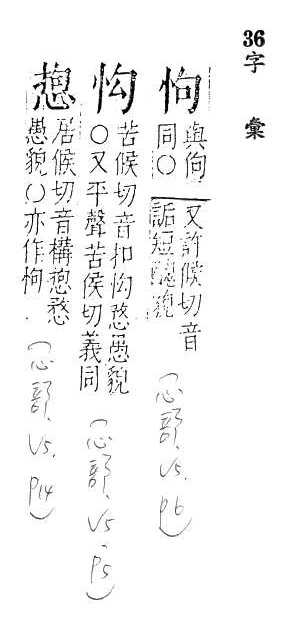 36字彙
怐
與佝
同○
又許候切音
詬短貌
(心部, V5, P6)
苦候切音扣愗愚貌
○又平聲苦侯切義同
(心部, V5, P5)
居候切音構愗
愚貌○亦作怐
(心部, V5, P14)